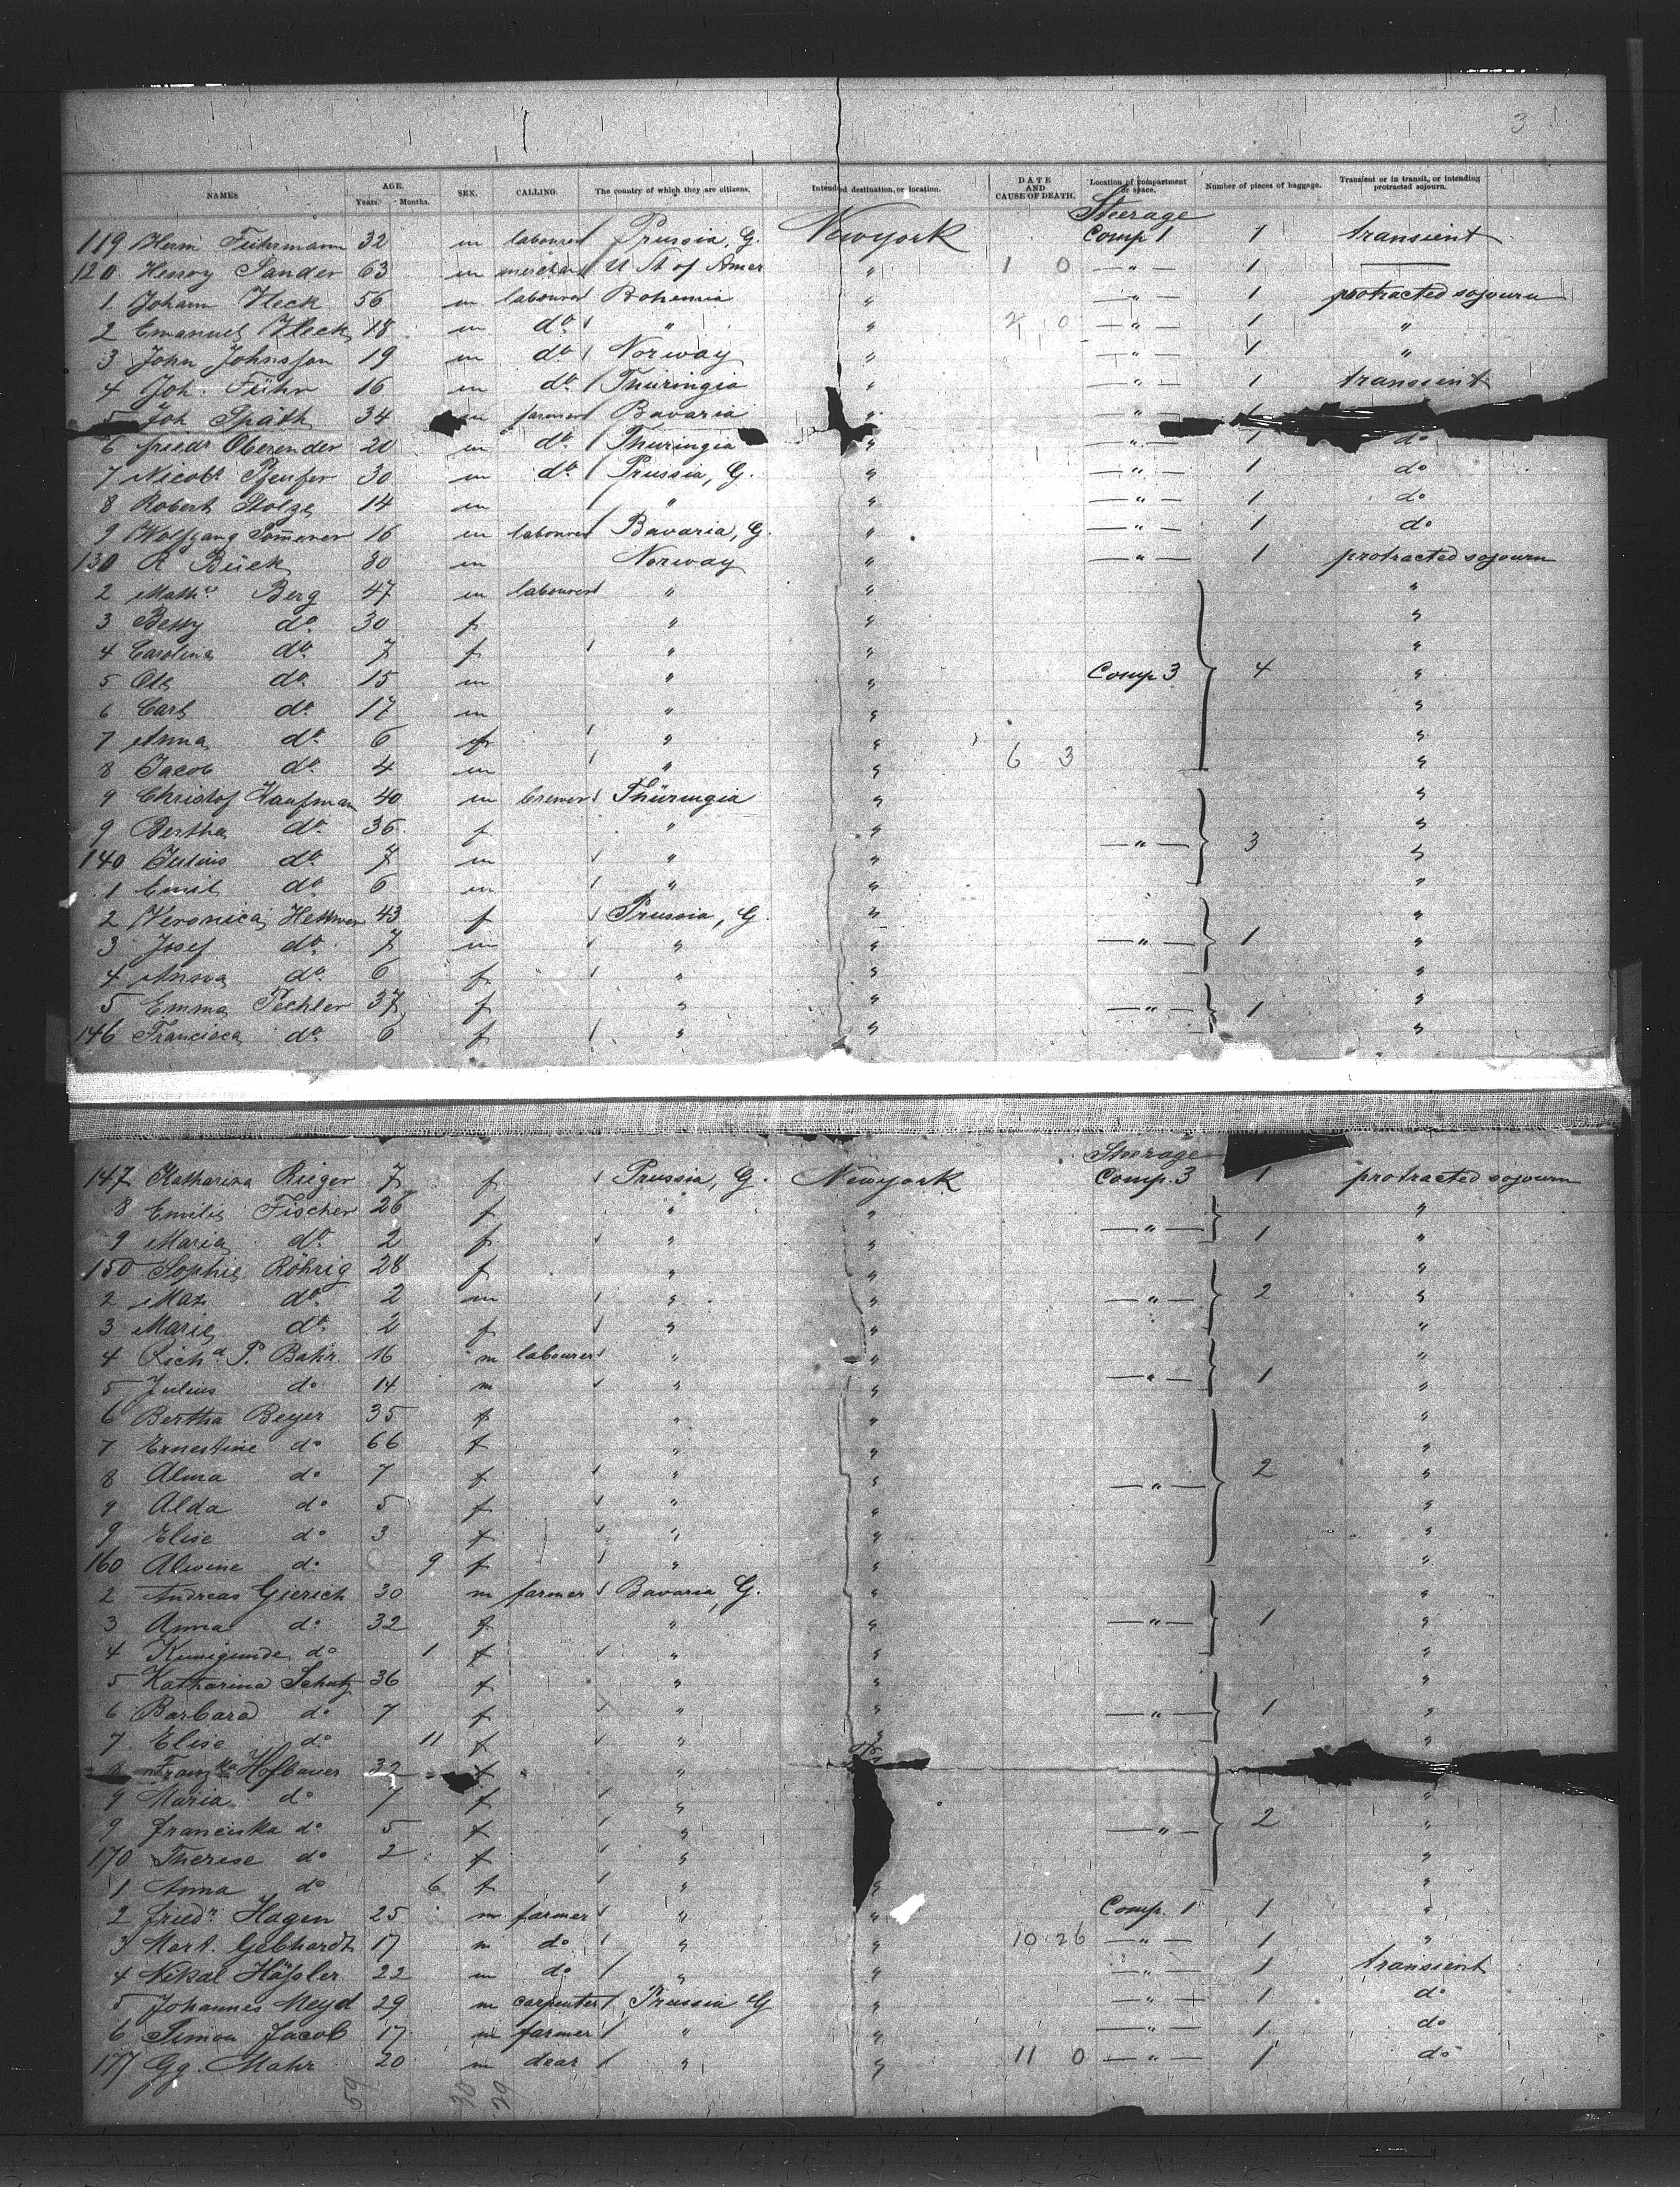 3
NAMES AGE. Years. Months. SEX. CALLING. The country of which they are citizens. Intended destination, or location. DATE AND CAUSE OF DEATH. Location of compartment or space. Number of pieces of baggage. Transient or in transit, or intending protracted sojourn.
Steerage
119 Herm Fuhrmann 32 m labourer Prussia, G. Newyork Comp 1 1 transient
120 Henry Sander 63 m merchant U St of Amer " 1 0 — " — 1 ———
1 Johann Heck 56 m labourer Bohemia " — " — 1 protracted sojourn
2 Emanuel Heck 18 m do " " 2 0 — " — 1 "
3 John Johnsson 19 m do Norway " — " — 1 "
4 Joh. Führ 16 m do Thuringia " — " — 1 transient
5 Joh Späth 34 m farmer Bavaria " — " — 1
6 Friedr Oberender 20 m do Thuringia " — " — 1 do
7 Nicol. Pfeufer 30 m do Prussia, G. " — " — 1 do
8 Robert Stolze 14 m " " — " — 1 do
9 Wolfgang Som̅erer 16 m labourer Bavaria, G. " — " — 1 do
130 R Bück 30 m Norway " — " — 1 protracted sojourn
2 Math. Berg 47 m labourer " " "
3 Betsy do 30 f " " "
4 Carolina do 7 f " " "
5 Ole do 15 m " " Comp. 3 4 "
6 Carl do 17 m " " "
7 Anna do 6 f " " "
8 Jacob do 4 m " " 6 3 "
9 Christof Kaufman 40 m Thüringia " "
9 Bertha do 36 f " " — " — 3 "
140 Julius do 7 m " " "
1 Emil do 6 m " " "
2 Veronica 43 f Prussia, G " "
3 Josef do 7 m " " — " — 1 "
4 Anna do 6 f " " "
5 Emma Pechler 37 f " " — " — 1 "
146 Francisca do 6 f " " "
Steerage
147 Katharina Rieger 7 f Prussia, G. Newyork Comp. 3 1 protracted sojourn
8 Emilie Fischer 26 f " " "
9 Maria do 2 f " " — " — 1 "
150 Sophie Röhrig 28 f " " "
2 Max do 2 m " " — " — 2 "
3 Marie do 2 f " " "
4 Richd P. Bahr 16 m labourer " " "
5 Julius do 14 m " " — " — 1 "
6 Bertha Beyer 35 f " " "
7 Ernestine do 66 f " " "
8 Alma do 7 f " " — " — 2 "
9 Alda do 5 f " " "
9 Elise do 3 f " " "
160 Alwine do 9 f " " "
2 Andreas Gierich 30 m farmer Bavaria, G. " "
3 Anna do 32 f " " — " — 1 "
4 Kunigunde do 1 f " " "
5 Katharina Schatz 36 f " " "
6 Barbara do 7 f " " — " — 1 "
7 Elise do 11 f " " "
8 Franzka Hofbauer 32 f "
9 Maria do 7 f " "
9 Franciska do 5 f " — " — 2 "
170 Therese do 2 f " "
1 Anna do 6 f " " "
2 Friedr. Hagen 25 m farmer " " Comp. 1 1 "
3 Mart. Gebhardt 17 m do " " 10 26 — " — 1 "
4 Nikal Häßler 22 m do " " — " — 1 transient
5 Johannes Meyd 29 m carpenter Prussia G " — " — 1 do
6 Simon Jacob 17 m farmer " " — " — 1 do
177 Gg. Mahr 20 m " " 11 0 — " — 1 do
59 30 29